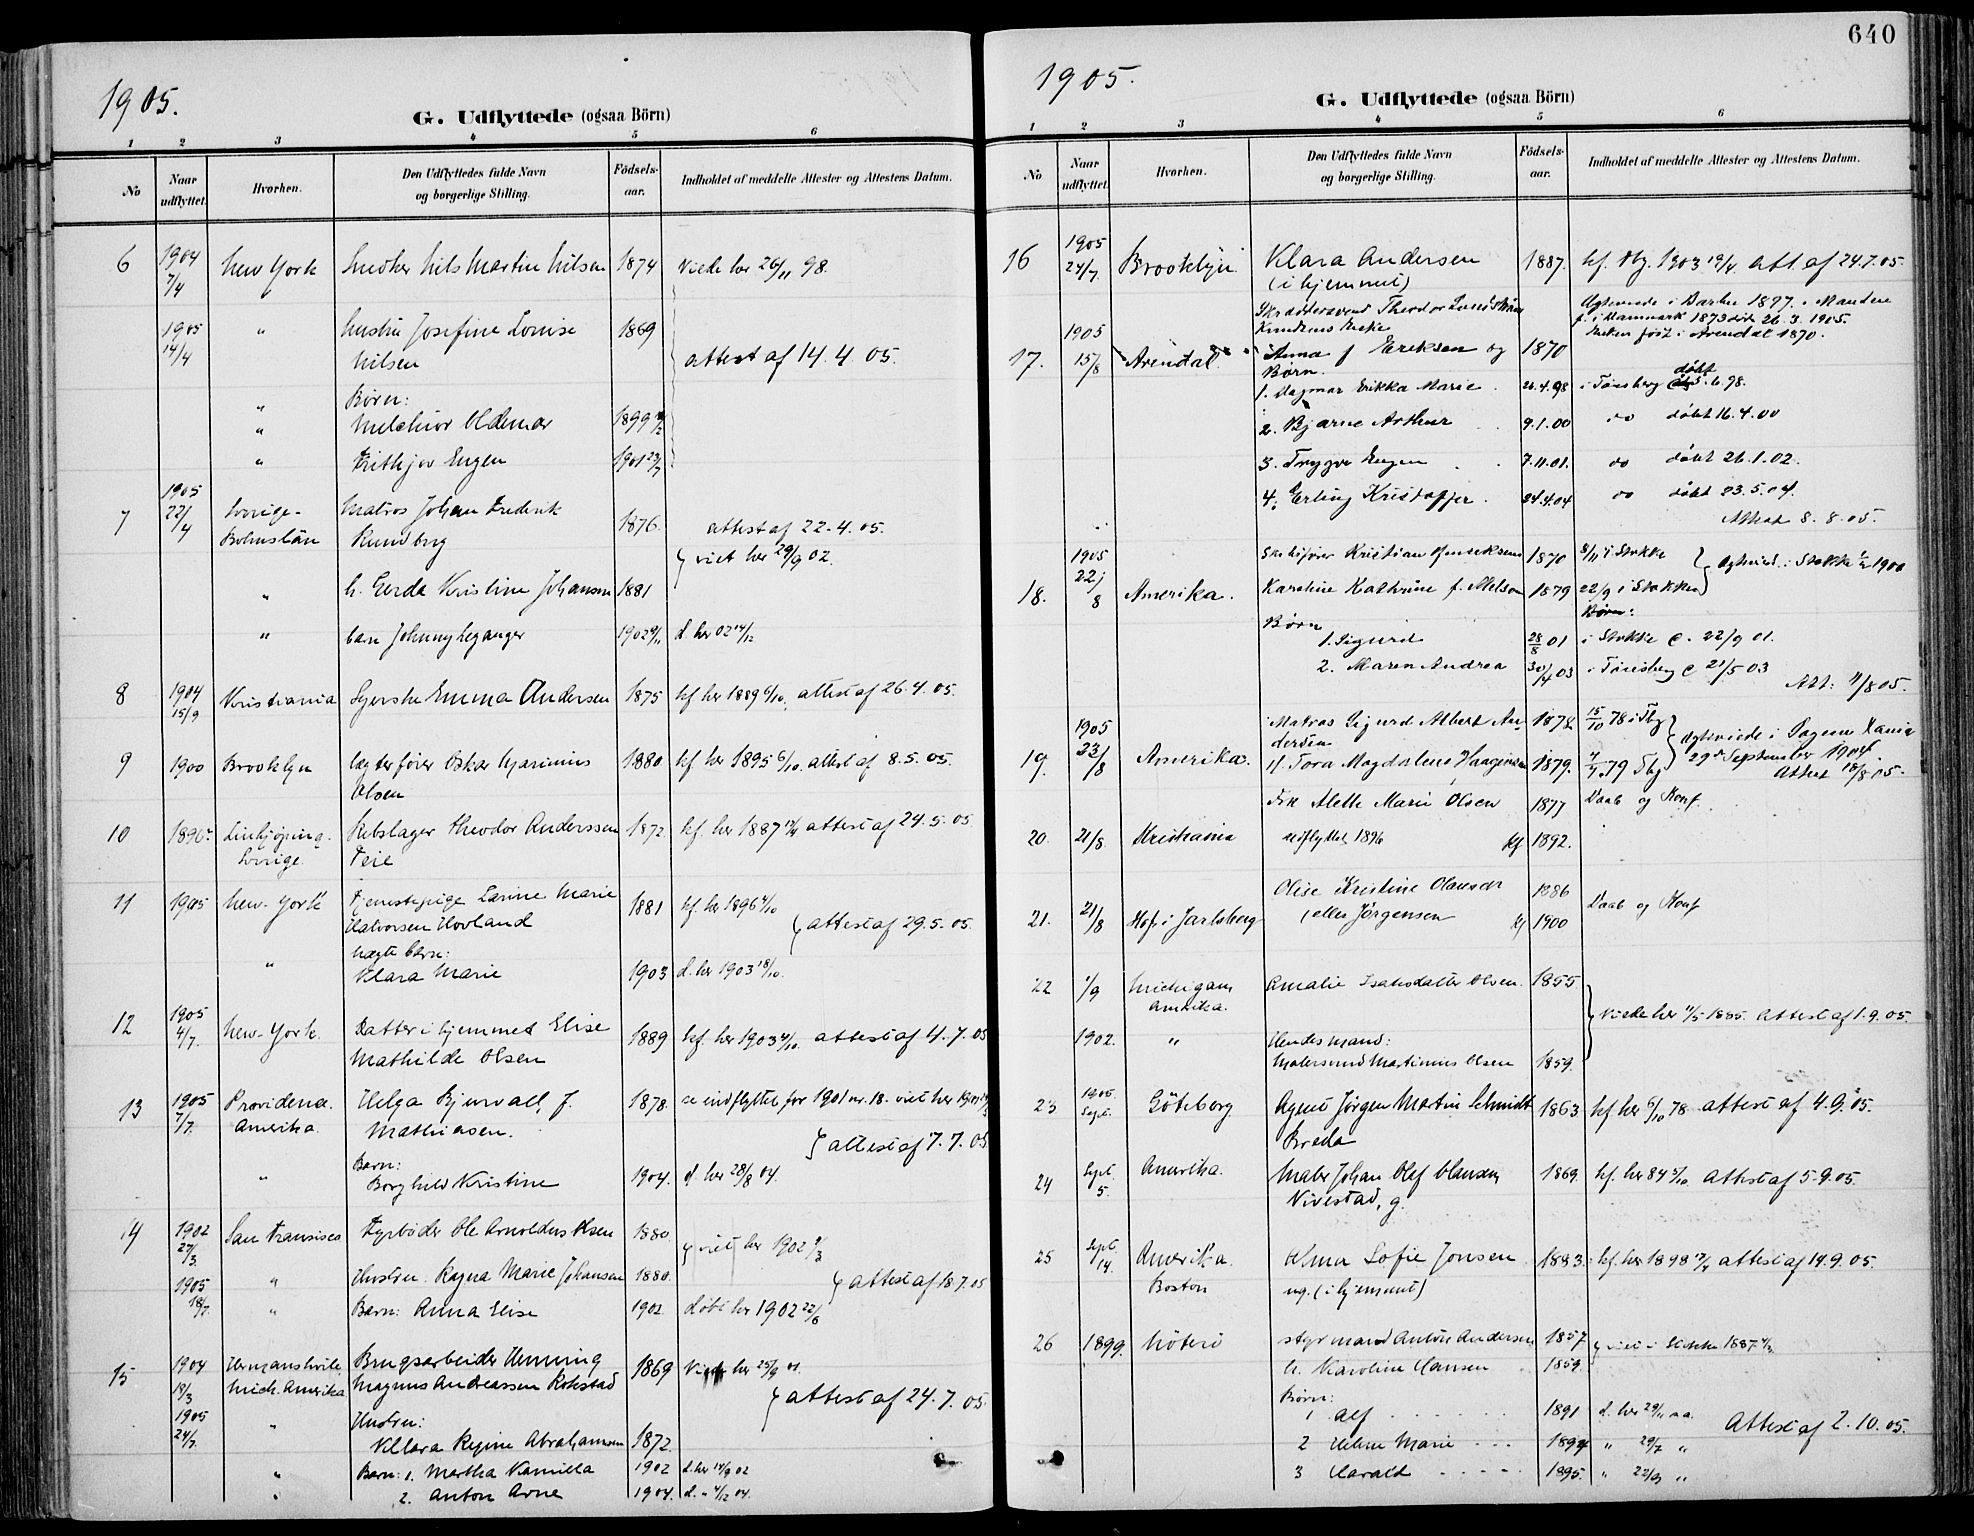 640
1905.
G. Udflyttede (ogsaa Börn)
1 2 3 4 5 6
No
Naar udflyttet.
Hvorhen.
Den Udflyttedes fulde Navn og borgerlige Stilling.
Fødsels-aar.
Indholdet af meddelte Attester og Attestens Datum.
6 1904 7/4 New York Snedker Nils Martin Nilsen 1874 Viede her 26/11 98.
1905 14/4 " Hustru Josefine Louise Nilsen 1869 attest af 14.4.05.
Børn:
" Melchior Oldemar 1899
" Frithjov Eugen 1901 23/7
7 1905 22/4 Sverige - Bohuslän Matros Johan Frederik Rundberg 1876 attest af 22.4.05.
viet her 29/9 02.
" h. Gerda Kristine Johansen 1881
" barn Johnny Leganger 1902 9/11 d. her 02 14/12
8 1904 15/9 Kristiania Syerske Emma Andersen 1875 kf. her 1889 6/10. attest af 26.4.05.
9 1900 Brooklyn Lægterfører Oskar Hjarimius Olsen 1880 kf. her 1895 6/10. attest af 8.5.05.
10 Linkjøping. Sverige Rebslager Theodor Anderssen Teie 1872. kf. her 1887 attest af 24.5.05
11 1905 New-York Tjenestepige Larine Marie Halvorsen Hovland 1881 kf. her 1896 4/10
attest af 29.5.05.
" uægte barn: Klara Marie 1903 d. her 1903 18/10.
12 1905 4/7. New-York. Datter i hjemmet Elise Mathilde Olsen 1889 kf. her 1903 4/10. attest af 4.7.05
13 1905 7/7. Providence. Amerika. Helga Bjurvall, f. Mathiasen. 1878. se indflyttet for 1901 nr. 18. viet her 1901
attest af 7.7.05
" Barn: Borghild Kristine 1904. d. her 28/8 04.
14 1902 27/3. San Fransisco Fyrbøder Ole Arnoldus Olsen 1880. viet her 1902 9/3
1905 18/7. " Hustru. Ragna Marie Johansen 1880. attest af 18.7.05
" Barn: Anna Elise 1902. døbt her 1902 22/6
15 1904 18/3 Hermansville, Mich. Amerika Brugsarbeider Henning Magnus Andreassen Rokstad 1869 Viede her 25/9 01.
attest af 24.7.05.
1905 24/7. " Hustru: Kllara Regine Abrahamsen 1872.
" Børn: 1. Martha Kamilla 1902 d. her 14/9 02
" 2. Anton Arne 1904. d. " 4/12 04.
1905.
G. Udflyttede (ogsaa Börn)
1 2 3 4 5 6
No
Naar udflyttet.
Hvorhen.
Den Udflyttedes fulde Navn og borgerlige Stilling.
Fødsels-aar.
Indholdet af meddelte Attester og Attestens Datum.
16 1905 24/7. Brooklyn. Klara Andersen (i hjemmet) 1887. kf. Tbg. 1903 19/4. Att. af 24.7.05.
Skræddersvend Theodor Lundstrøm Knudsens Enke
Ægteviede i 1897. Manden f. i Danmark 1873 død 26.3.1905. Enken født i Arendal 1870.
17. 1905 15/8 Arendal. Anna f. Eriksen og Børn. 1870
1. Dagmar Erikka Marie 26.4.98 i Tønsberg døbt 5.6.98.
2. Bjarne Arthur 9.1.00 do døbt 16.4.00
3. Trygve Eugen 7.11.01. do døbt 26.1.02.
4. Erling Kristoffer. 24.4.04 do døbt 23.5.04.
Attest 8.8.05.
18. 1905 22/8 Amerika. Kristian 1870 8/11 i Stokke
Ægteviede i Stokke 1900
Karoline Kathrine f. Nelson 1879 22/9 i Stokken
Børn
1. Sigurd 28/8 01 i Stokke C. 22/9 01.
2. Maren Andrea 30/4 03 i Tønsberg C 21/5 03
Att: 11/8 05.
19. 1905 23/8 Amerika. Matros Sigurd Albert Andersen 1878 15/10 78 i Tbg
H. Tora Magdalene Haagensen 1879. 79 Tbg
29de September 1904.
Attest 18/8 05.
20. 21/8. Kristiania Frk Aleth Marie Olsen 1877 Daab og Konf.
udflyttet 1896 kf 1892.
21. 21/8 Hof i Jarlsberg Olise Kristine Olausen (eller Jørgensen 1886 Daab og Konf
kf 1900
22 1/9 Michigan, Amerika. Amalie Isaksdatter Olsen. 1855
Viede her 11/5 1885. Attest af 1.9.05.
1902. " Hendes mand: Malersvend Martinius Olsen 1859.
23 1905 Sept. Göteborg Agent Jørgen Martin Schmidt Breda 1863 kf her 6/10 78. attest af 4.9.05.
24 Sept. 5. Amerika. Maler Johan Olaf Hansen Nivestad, g. 1869. kf. her 84 5/10. Attest af 5.9.05.
25 Sept. 14. Amerika. Boston Alma Sofie Jonsen ug. (i hjemmet) 1883. kf. her 1898 attest af 14.9.05.
26 1899. Nøterø Styrmand Anton Andersen 1857. viet i Stokke 1887
h. Karoline Hansen 1859.
Børn:
1 Alf 1891 d. her 29/11 s.a. Attest af 2.10.05.
2 Helene Marie 1894 " 29/7 "
3 Harald 1895. " 22/9 "